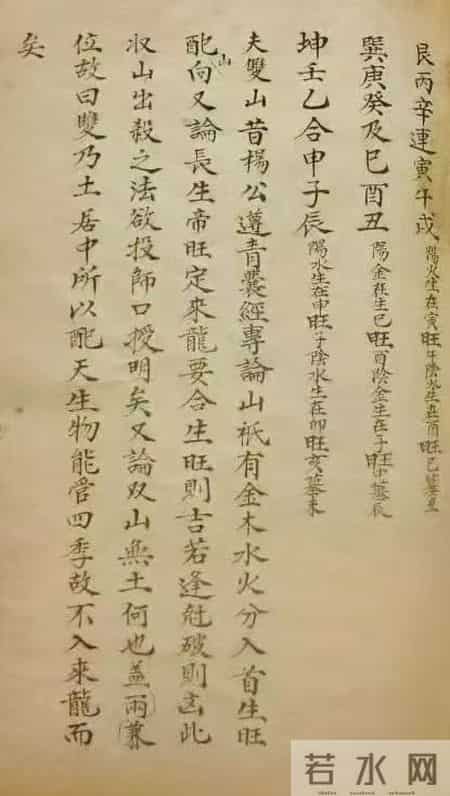 艮丙辛連寅午戌 陽火生在寅旺午陰火生在酉旺巳墓丑
巽庚癸及巳酉丑 陽金在生巳旺酉陰金生在子旺申墓辰
坤壬乙合申子辰 陽水生在申旺子陰水生在卯旺亥墓未
夫雙山昔楊公遵青囊經專論山祇有金木水火分入首生旺
配向山又論長生帝旺定來龍要合生旺則吉若逢尅破則凶此
収山出殺之法欲投師口授明矣又論双山無土何也蓋兩兼
位故曰雙乃土居中所以配天生物能管四季故不入來龍而
矣
若水网